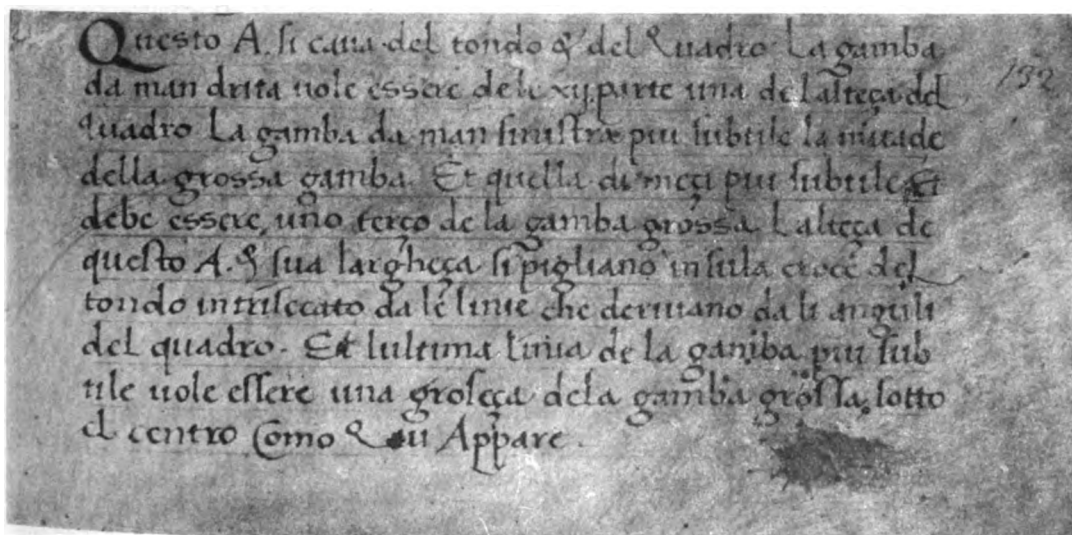 Questo A. si caua del tondo & del Quadro. La gamba
da man drita uole essere de le xij. parte una de lalteça del
Quadro La gamba da man sinistra piu subtile la mitade
della grossa gamba. Et quella di meçi piu subtile Et
debe essere, uno terço de la gamba grossa. Lalteça de
questo A. & sua largheça si pigliano in sula croce del
tondo intrisecato da le linie che deriuano da li anguli
del quadro. Et lultima linia de la gamba piu sub
tile uole essere una groseça dela gamba grossa. sotto
el centro Como Qui Appare.
132